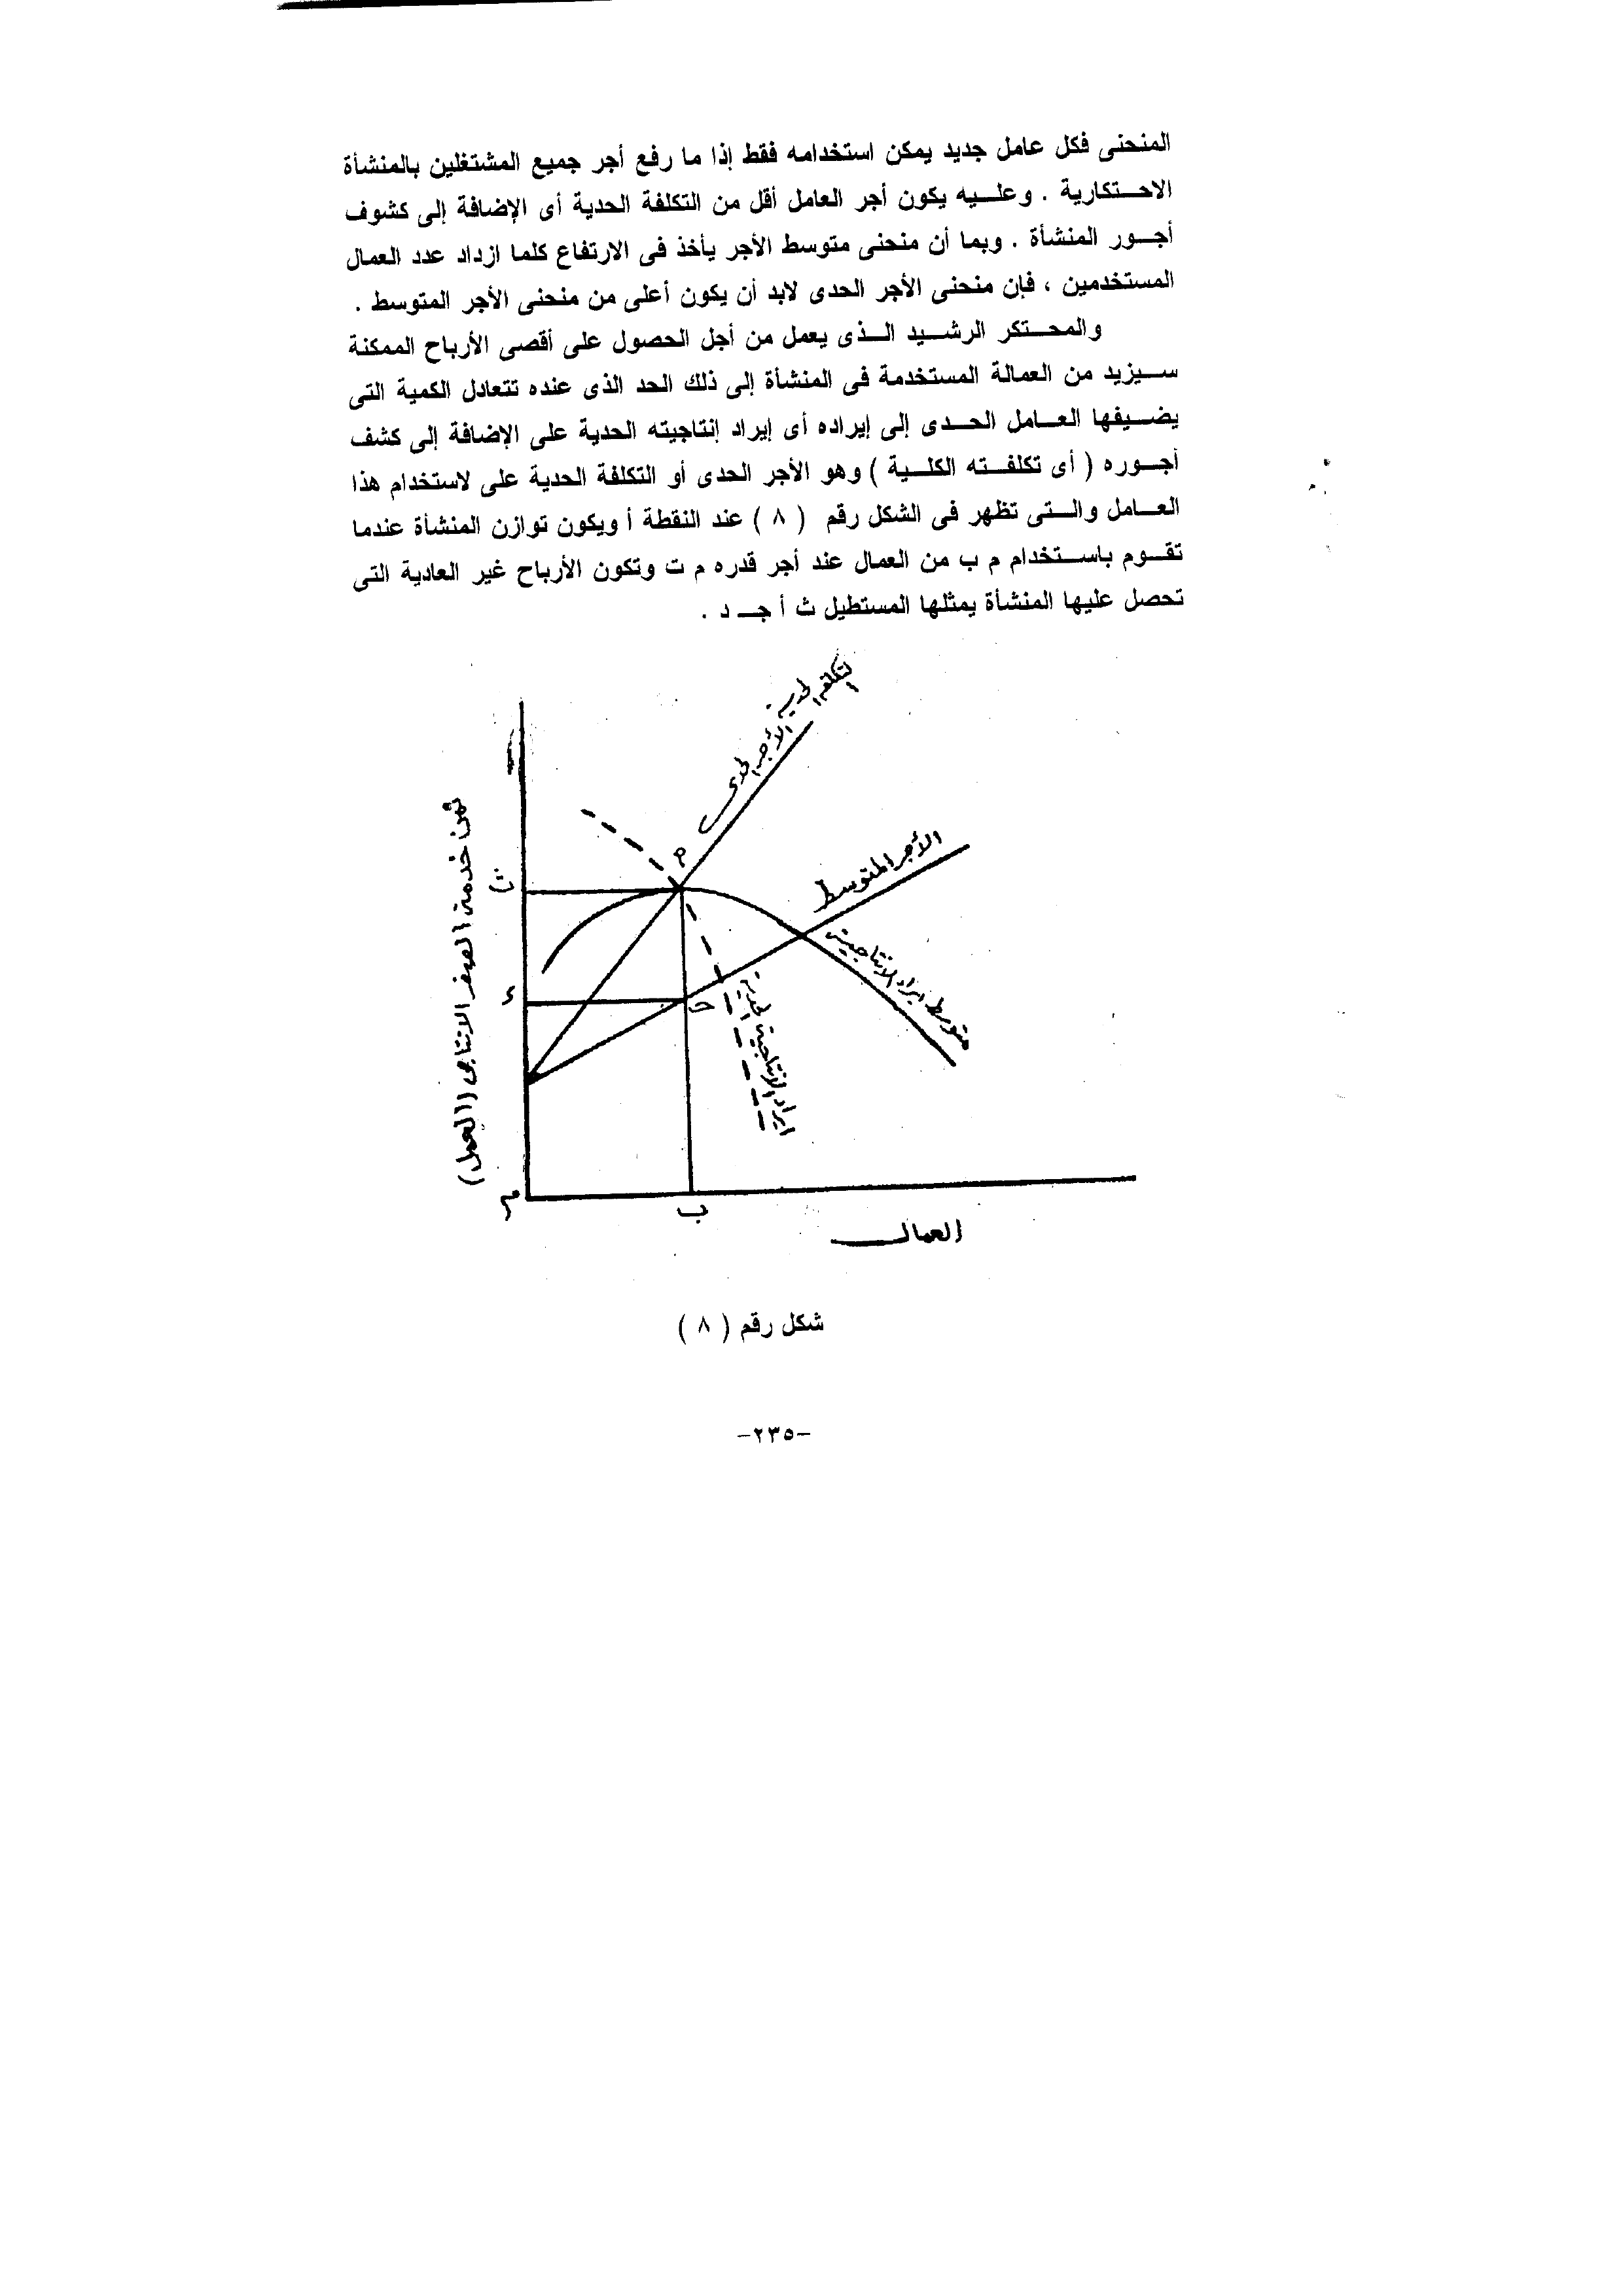 المنحنى فكل عامل جديد يمكن استخدامه فقط إذا ما رفع أجر جميع المشتغلين بالمنشأة
الاحتكارية . وعليه يكون أجر العامل أقل من التكلفة الحدية أى الإضافة إلى كشوف
أجور المنشأة . وبما أن منحنى متوسط الأجر يأخذ فى الارتفاع كلما ازداد عدد العمال
المستخدمين ، فإن منحنى الأجر الحدى لابد أن يكون أعلى من منحنى الأجر المتوسط .
والمحتكر الرشيد الذى يعمل من أجل الحصول على أقصى الأرباح الممكنة
سيزيد من العمالة المستخدمة فى المنشأة إلى ذلك الحد الذى عنده تتعادل الكمية التى
يضيفها العامل الحدى إلى إيراده أى إيراد إنتاجيته الحدية على الإضافة إلى كشف
أجوره ( أى تكلفته الكلية ) وهو الأجر الحدى أو التكلفة الحدية على لاستخدام هذا
العامل والتى تظهر فى الشكل رقم ( ٨ ) عند النقطة أ ويكون توازن المنشأة عندما
تقوم باستخدام م ب من العمال عند أجر قدره م ت وتكون الأرباح غير العادية التى
تحصل عليها المنشأة يمثلها المستطيل ث أ جـ د .
التكلفة الحدية
الأجر الحدى
الأجر المتوسط
متوسط ايراد الانتاجية
ايراد الانتاجية الحدية
ثمن خدمة العنصر الانتاجى (العمل)
ث
ء
حـ
م
ب
العمال
شكل رقم ( ٨ )
-٢٣٥-